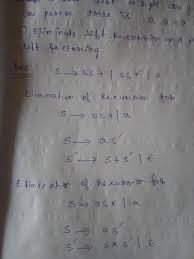 2) Eliminate left Recursion and
left factoring.
Ans:
S → SS+ | SS* | a
Elimination of Recursion for
S → SS+ | a
S → aS'
S' → S+S' | ε
Elimination of Recursion for
S → SS* | a
S → aS'
S' → S*S' | ε